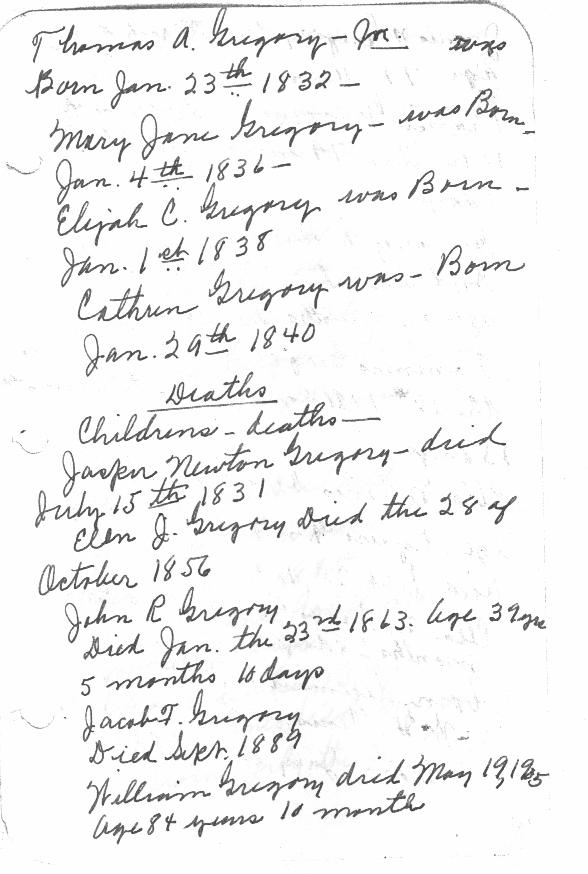 Thomas A. Gregory - Jr. was
Born Jan. 23th 1832 -
Mary Jane Gregory - was Born -
Jan. 4th 1836 -
Elijah C. Gregory was Born -
Jan. 1st 1838
Cathren Gregory was - Born
Jan. 29th 1840
Deaths
Childrens - deaths -
Jasper Newton Gregory - died
July 15th 1831
Elen J. Gregory Died the 28 of
October 1856
John R Gregory
Died Jan. the 23rd 1863. Age 39 yrs
5 months 10 days
Jacob T. Gregory
Died Sept. 1889
William Gregory died May 19,
Age 84 years 10 month